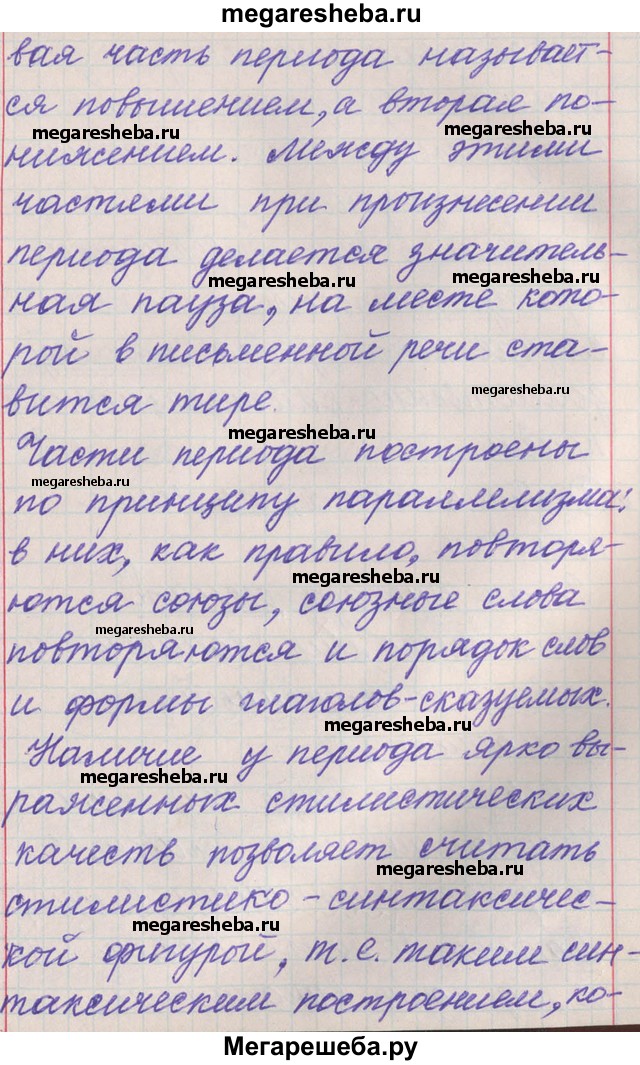 megaresheba.ru
вая часть периода называет-
ся повышением, а вторая по-
megaresheba.ru megaresheba.ru
нижением. Между этими
частями при произнесении
периода делается значитель-
megaresheba.ru megaresheba.ru
ная пауза, на месте кото-
рой в письменной речи ста-
megaresheba.ru
вится тире.
megaresheba.ru
Части периода построены
megaresheba.ru
по принципу параллелизма:
в них, как правило, повторя-
megaresheba.ru
ются союзы, союзные слова
megaresheba.ru
повторяются и порядок слов
и формы глаголов-сказуемых.
megaresheba.ru
Наличие у периода ярко вы-
megaresheba.ru
раженных стилистических
качеств позволяет считать
megaresheba.ru
стилистико-синтаксичес-
megaresheba.ru
кой фигурой, т.е. таким син-
таксическим построением, ко-
Мегарешеба.ру